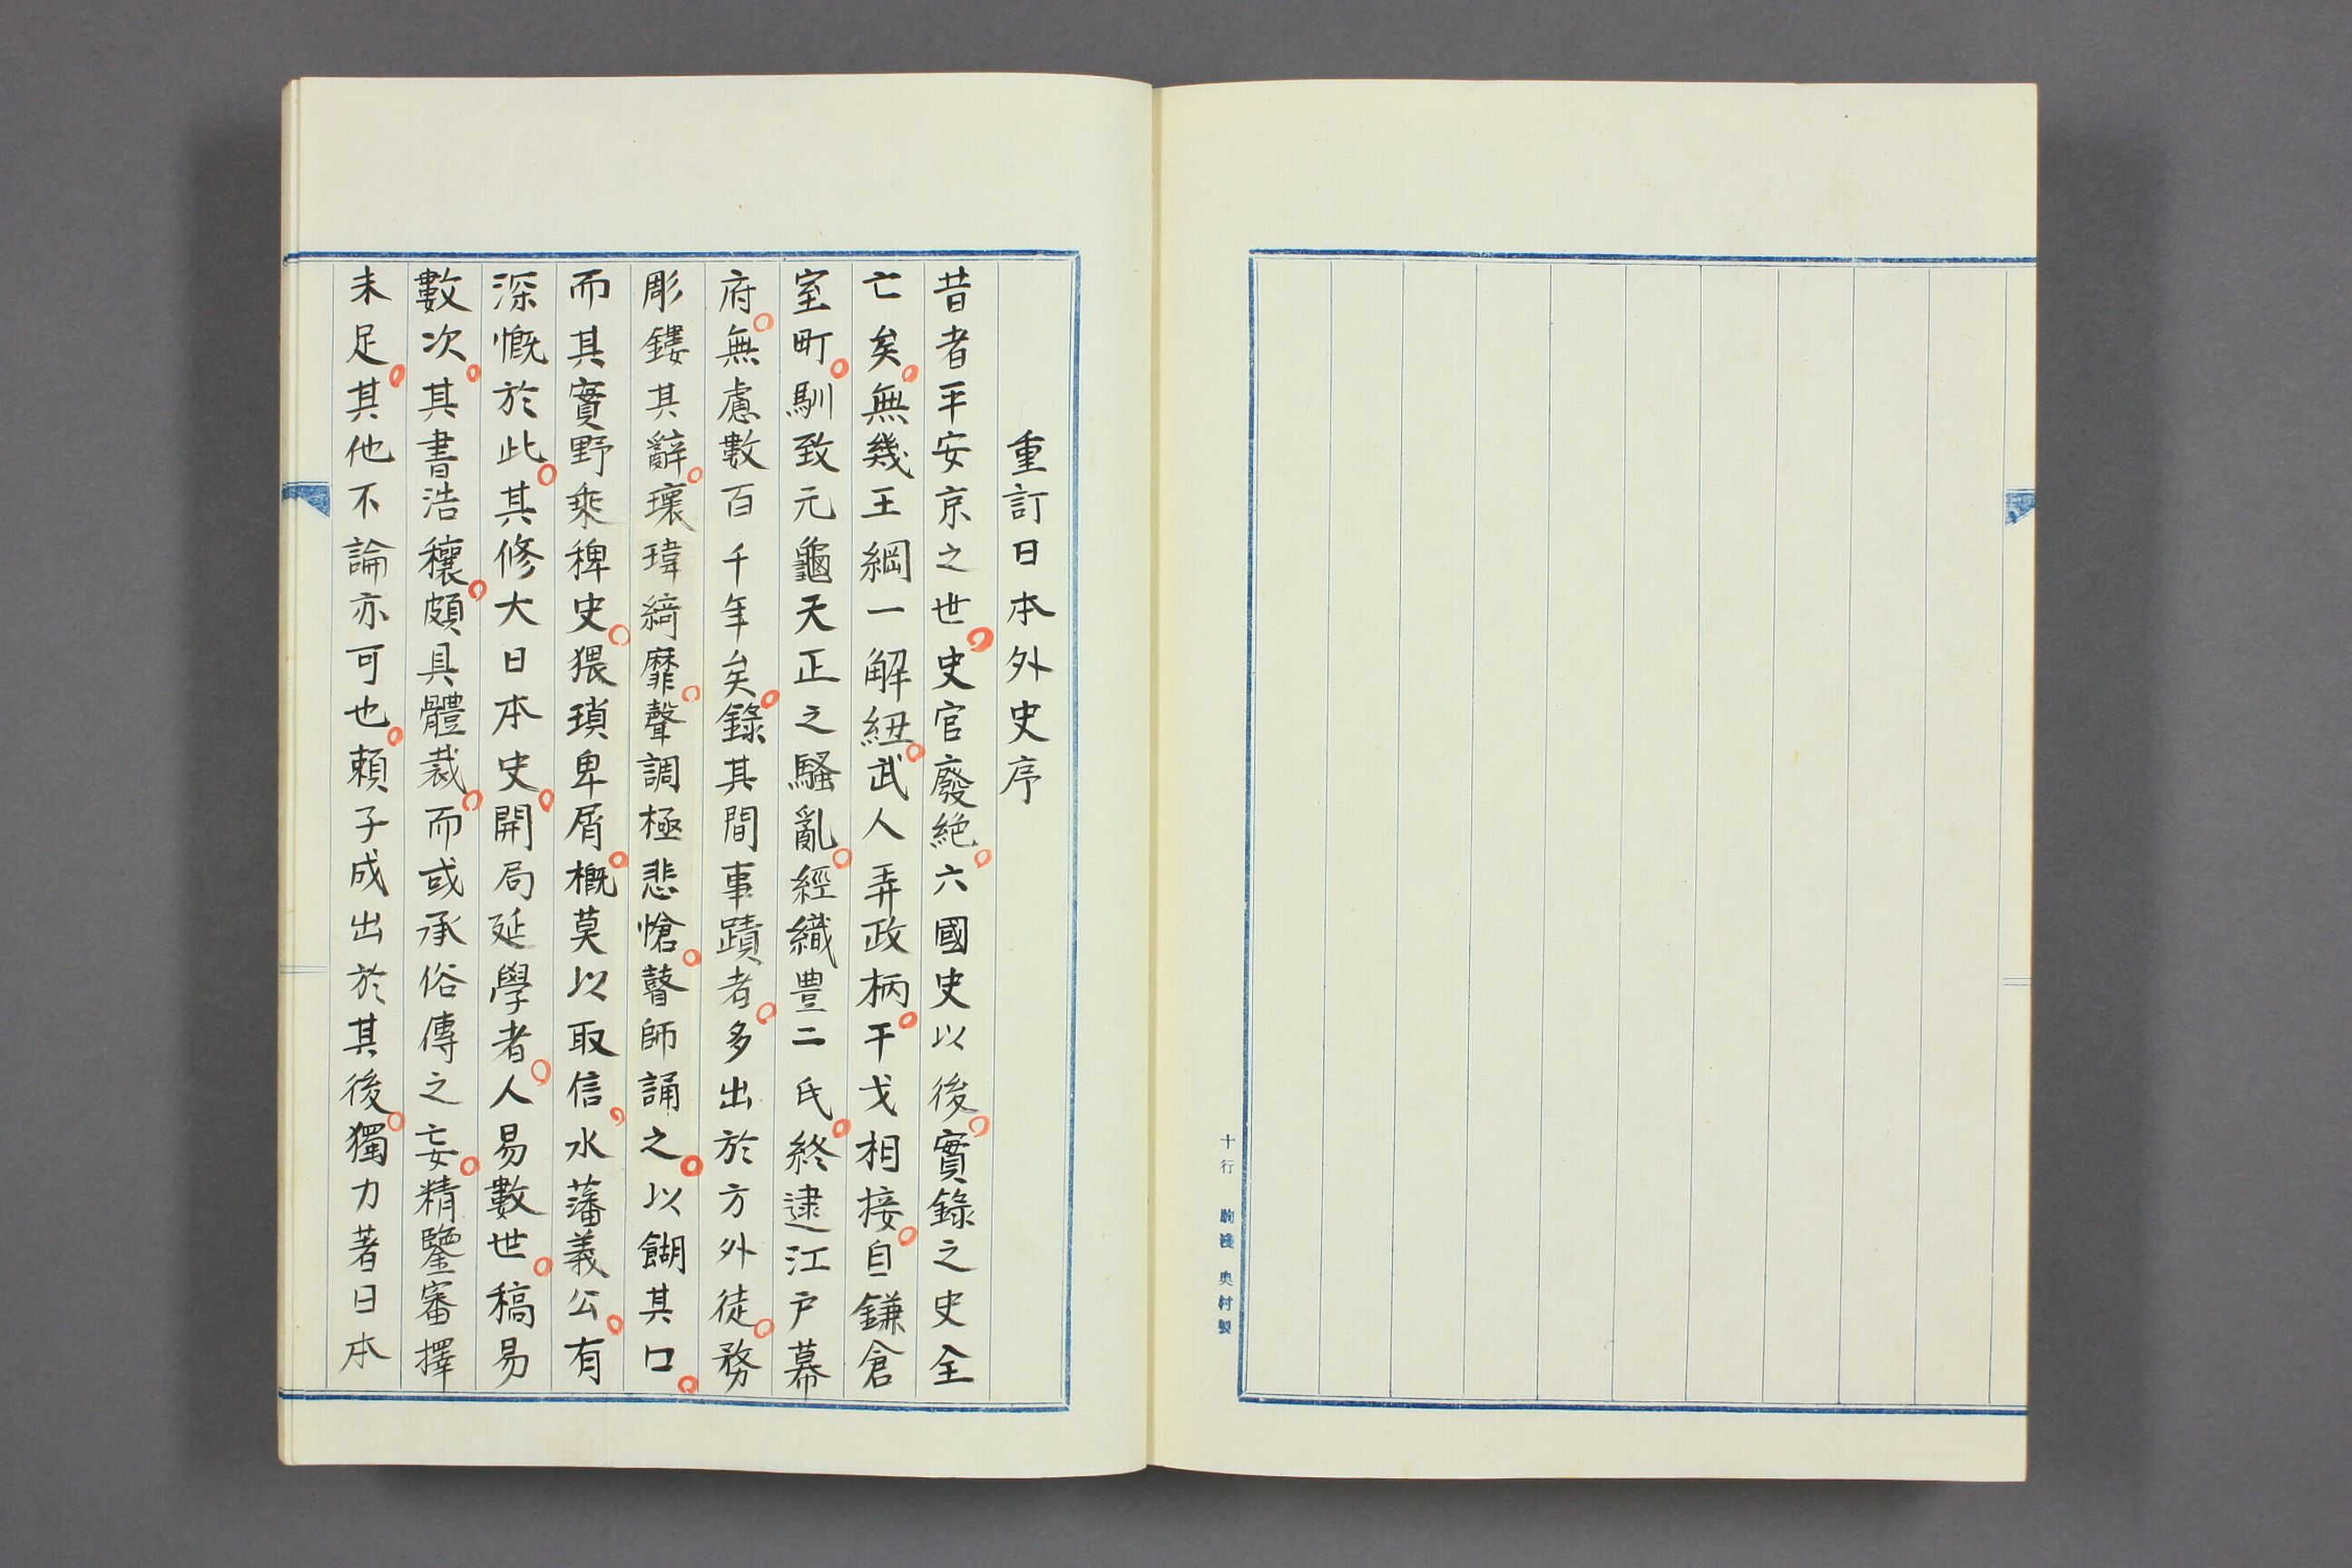 十行 駒淺 奥村製
重訂日本外史序
昔者平安京之世。史官廢絶。六國史以後。實錄之史全
亡矣。無幾王綱一解紐。武人弄政柄。干戈相接。自鎌倉
室町。馴致元龜天正之騷亂。經織豊二氏。終逮江戸幕
府。無慮數百千年矣。錄其間事蹟者。多出於方外徒。務
彫鏤其辭。瓌瑋綺靡。聲調極悲愴。瞽師誦之。以餬其口。
而其實野乘稗史。猥瑣卑屑。概莫以取信、水藩義公。有
深慨於此。其修大日本史。開局延學者。人易數世。稿易
數次。其書浩穰。頗具體裁。而或承俗傳之妄。精鑒審擇
未足。其他不論亦可也。賴子成出於其後。獨力著日本